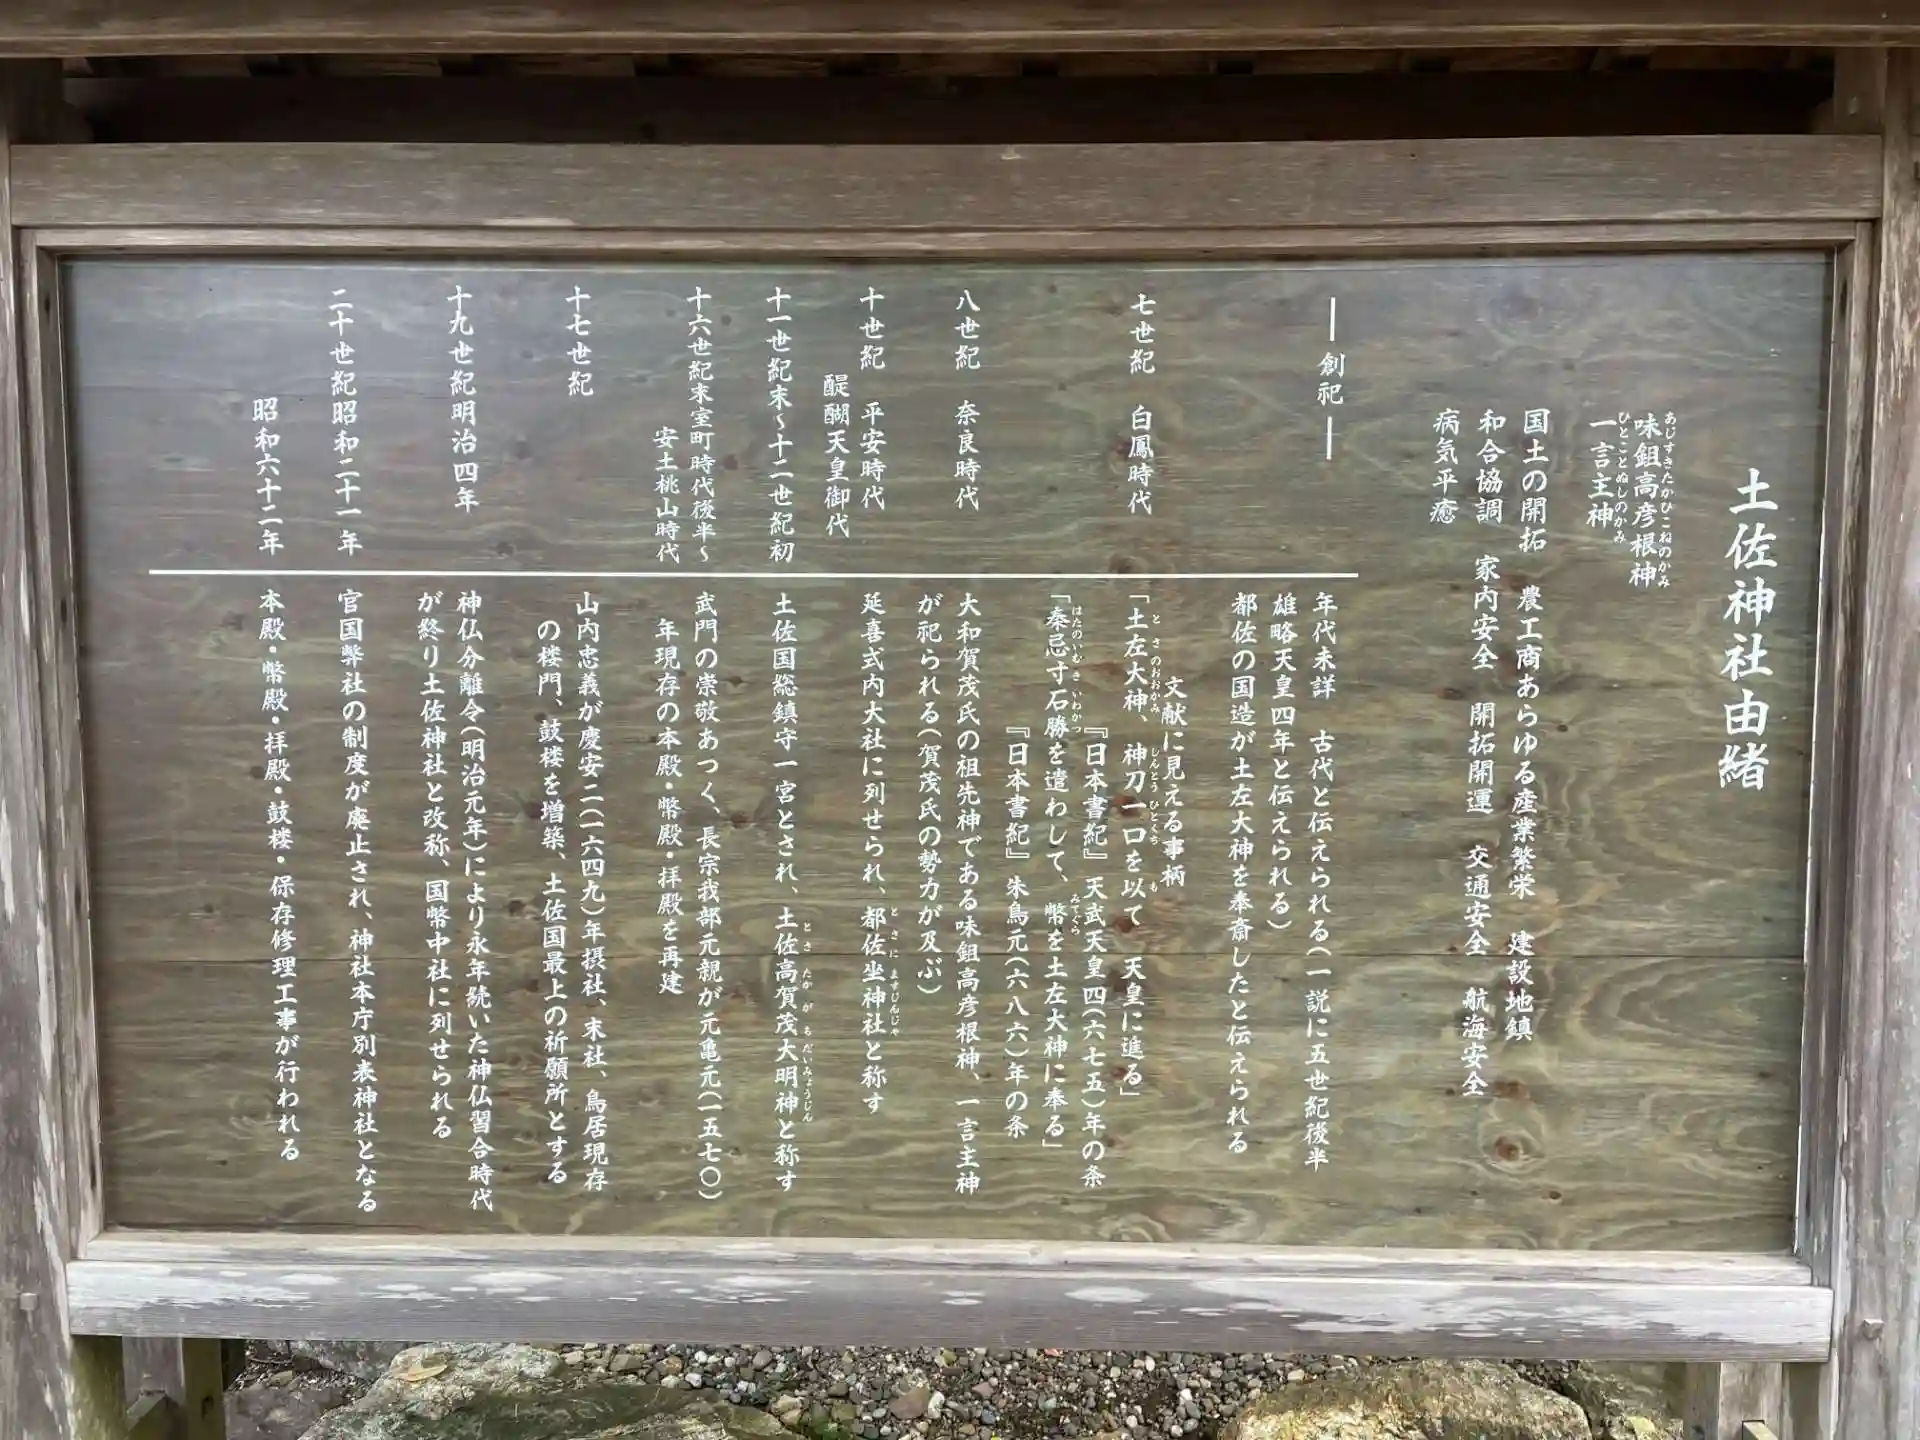 土佐神社由緒
味鉏高彦根神
あじすきたかひこねのかみ
一言主神
ひとことぬしのかみ
国土の開拓　農工商あらゆる産業繁栄　建設地鎮
和合協調　家内安全　開拓開運　交通安全　航海安全
病気平癒
― 創祀 ―
年代未詳　古代と伝えられる(一説に五世紀後半
雄略天皇四年と伝えられる)
都佐の国造が土左大神を奉斎したと伝えられる
七世紀　白鳳時代
文献に見える事柄
「土左大神、神刀一口を以て　天皇に進る」
とさのおおかみ　しんとうひとくち　も
『日本書紀』天武天皇四(六七五)年の条
「秦忌寸石勝を遣わして、幣を土左大神に奉る」
はたのいむきいわかつ　みてぐら
『日本書紀』朱鳥元(六八六)年の条
八世紀　奈良時代
大和賀茂氏の祖先神である味鉏高彦根神、一言主神
が祀られる(賀茂氏の勢力が及ぶ)
十世紀　平安時代
醍醐天皇御代
延喜式内大社に列せられ、都佐坐神社と称す
とさにますじんじゃ
十一世紀末～十二世紀初
土佐国総鎮守一宮とされ、土佐高賀茂大明神と称す
とさたかがもだいみょうじん
十六世紀末室町時代後半～
安土桃山時代
武門の崇敬あつく、長宗我部元親が元亀元(一五七〇)
年現存の本殿・幣殿・拝殿を再建
十七世紀
山内忠義が慶安二(一六四九)年摂社、末社、鳥居現存
の楼門、鼓楼を増築、土佐国最上の祈願所とする
十九世紀明治四年
神仏分離令(明治元年)により永年続いた神仏習合時代
が終り土佐神社と改称、国幣中社に列せられる
二十世紀昭和二十一年
官国弊社の制度が廃止され、神社本庁別表神社となる
昭和六十二年
本殿・幣殿・拝殿・鼓楼・保存修理工事が行われる